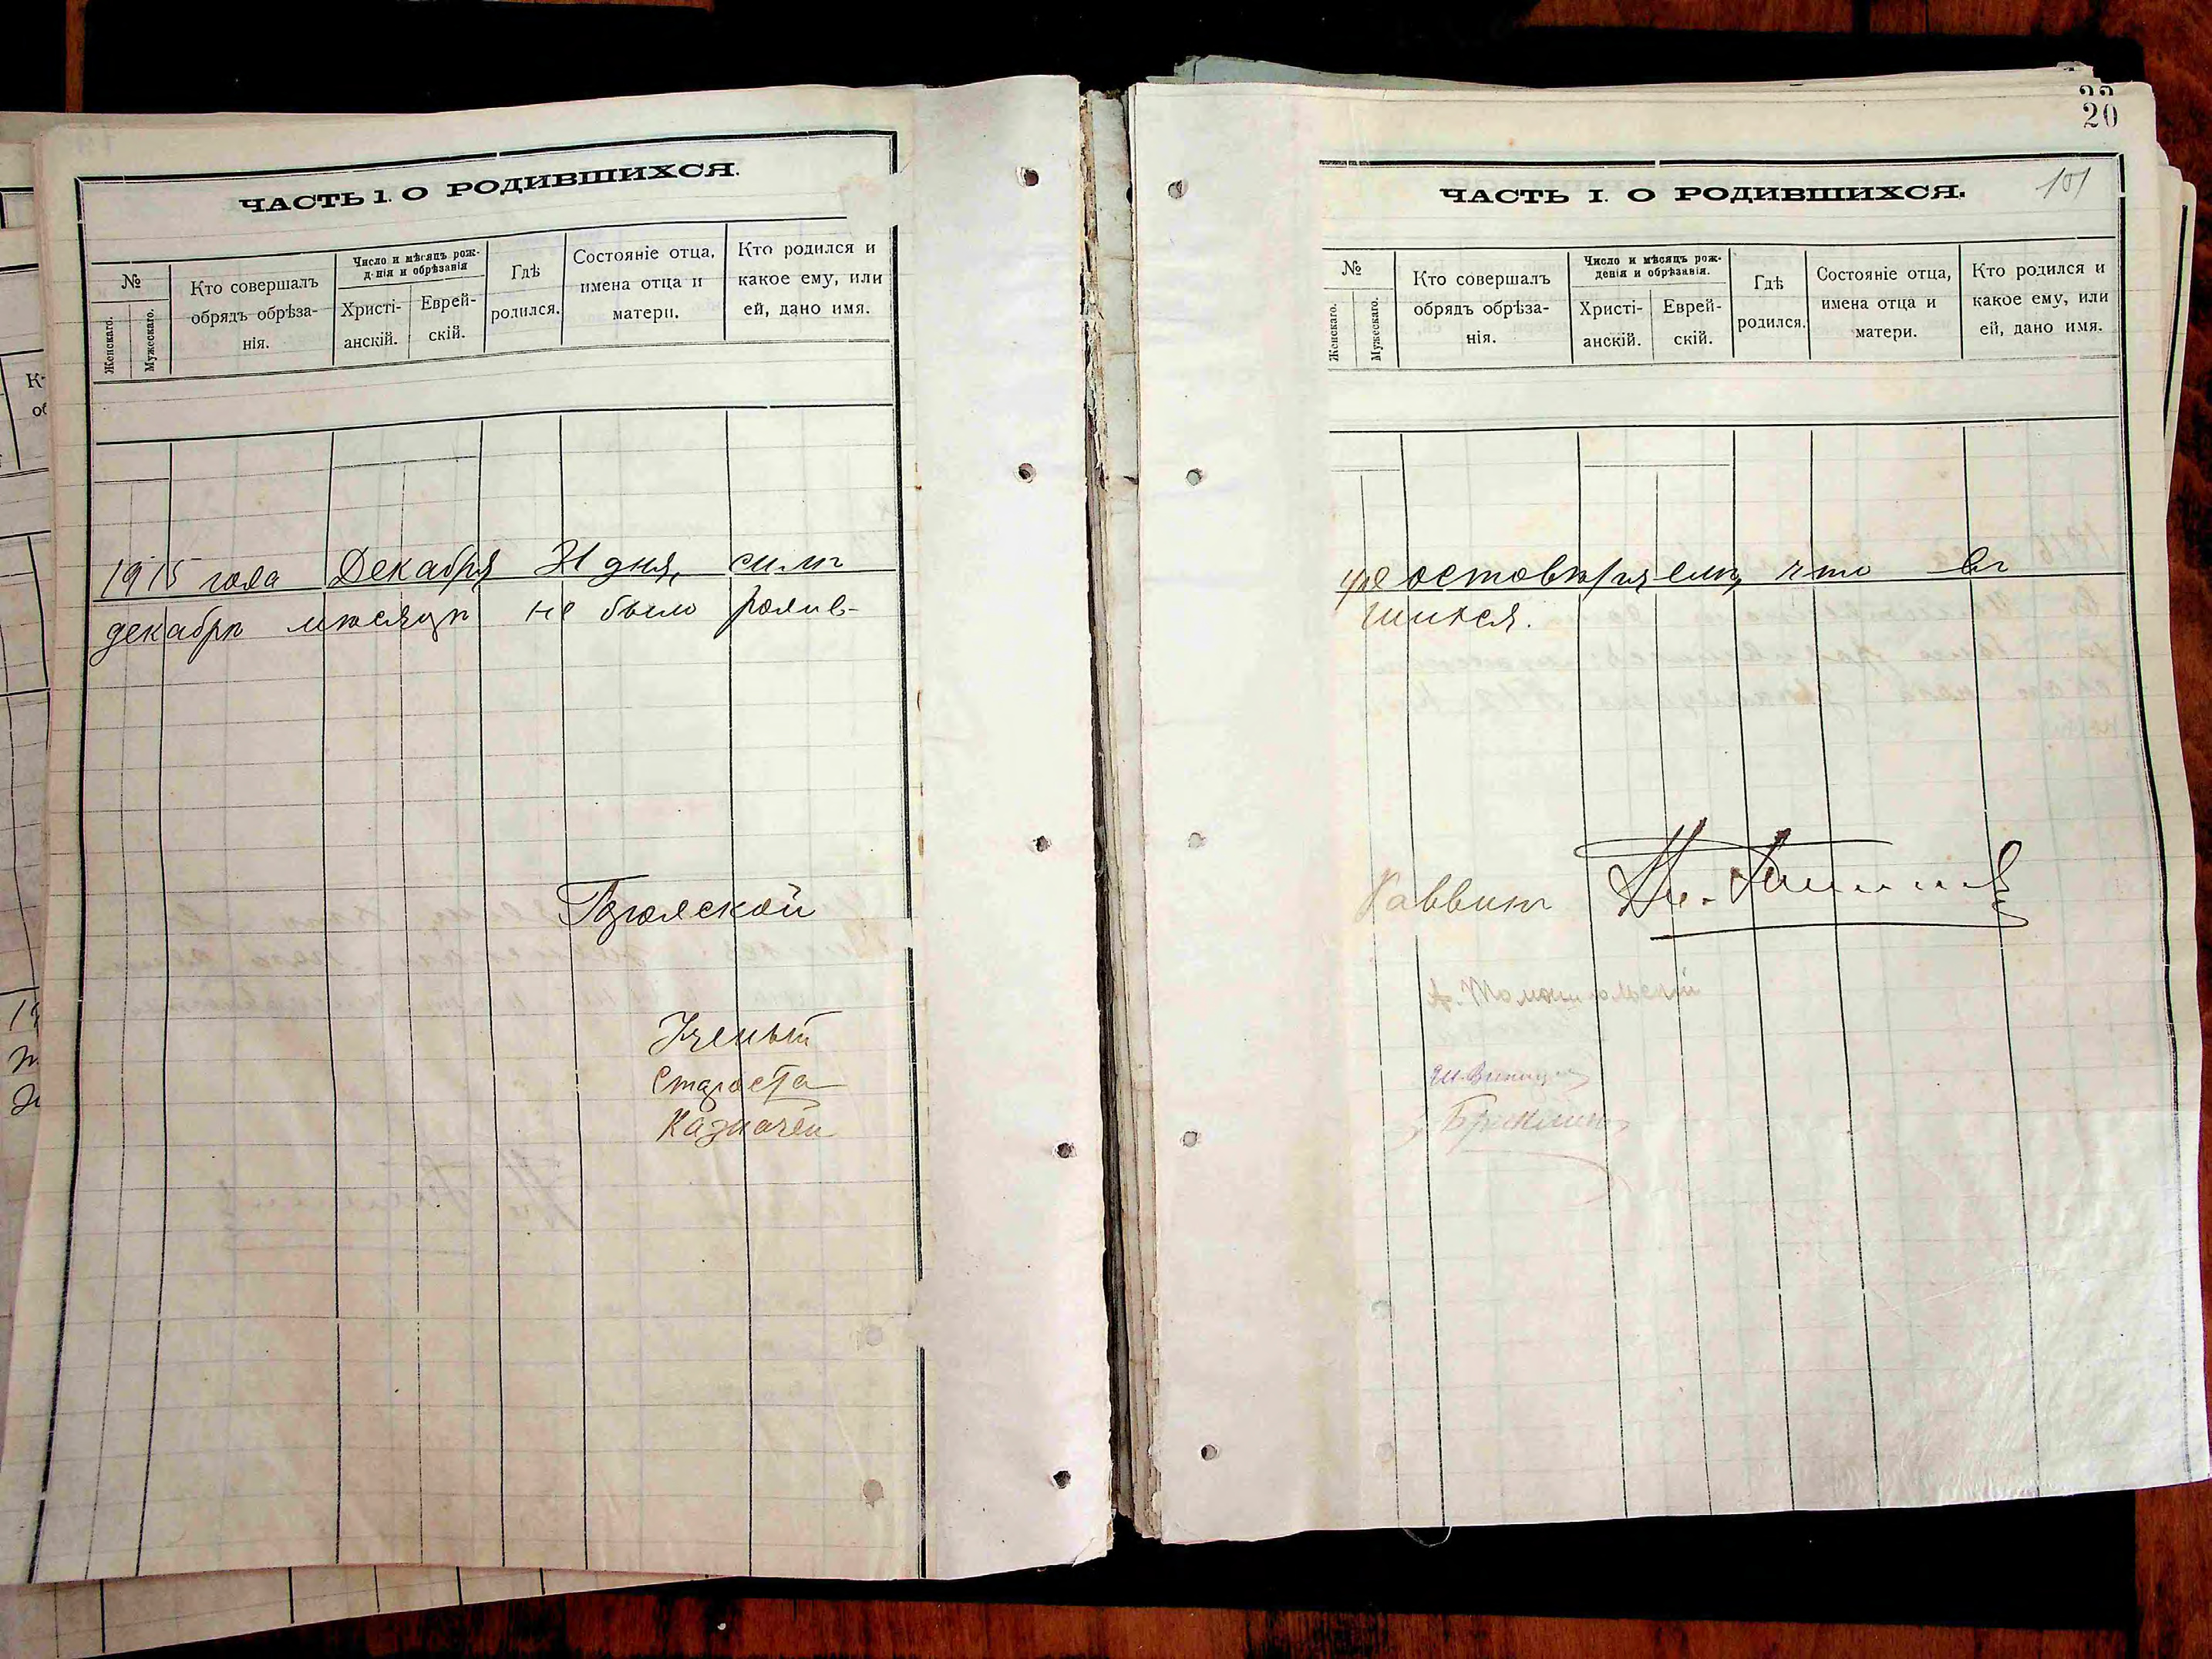 ЧАСТЬ 1. О РОДИВШИХСЯ.
№
Женскаго.
Мужескаго.
Кто совершалъ
обрядъ обрѣза-
нія.
Число и мѣсяцъ рож-
денія и обрѣзанія
Христі-
анскій.
Еврей-
скій.
Гдѣ
родился.
Состояніе отца,
имена отца и
матери.
Кто родился и
какое ему, или
ей, дано имя.
1915 года Декабря 31 дня, симъ
декабрѣ мѣсяцѣ не было родив-
Городской
Ученый
Староста
Казначей
22
20
101
ЧАСТЬ I. О РОДИВШИХСЯ.
№
Женскаго.
Мужескаго.
Кто совершалъ
обрядъ обрѣза-
нія.
Число и мѣсяцъ рож-
денія и обрѣзанія.
Христі-
анскій.
Еврей-
скій.
Гдѣ
родился.
Состояніе отца,
имена отца и
матери.
Кто родился и
какое ему, или
ей, дано имя.
удостовѣряемъ, что въ
шихся.
Раввинъ